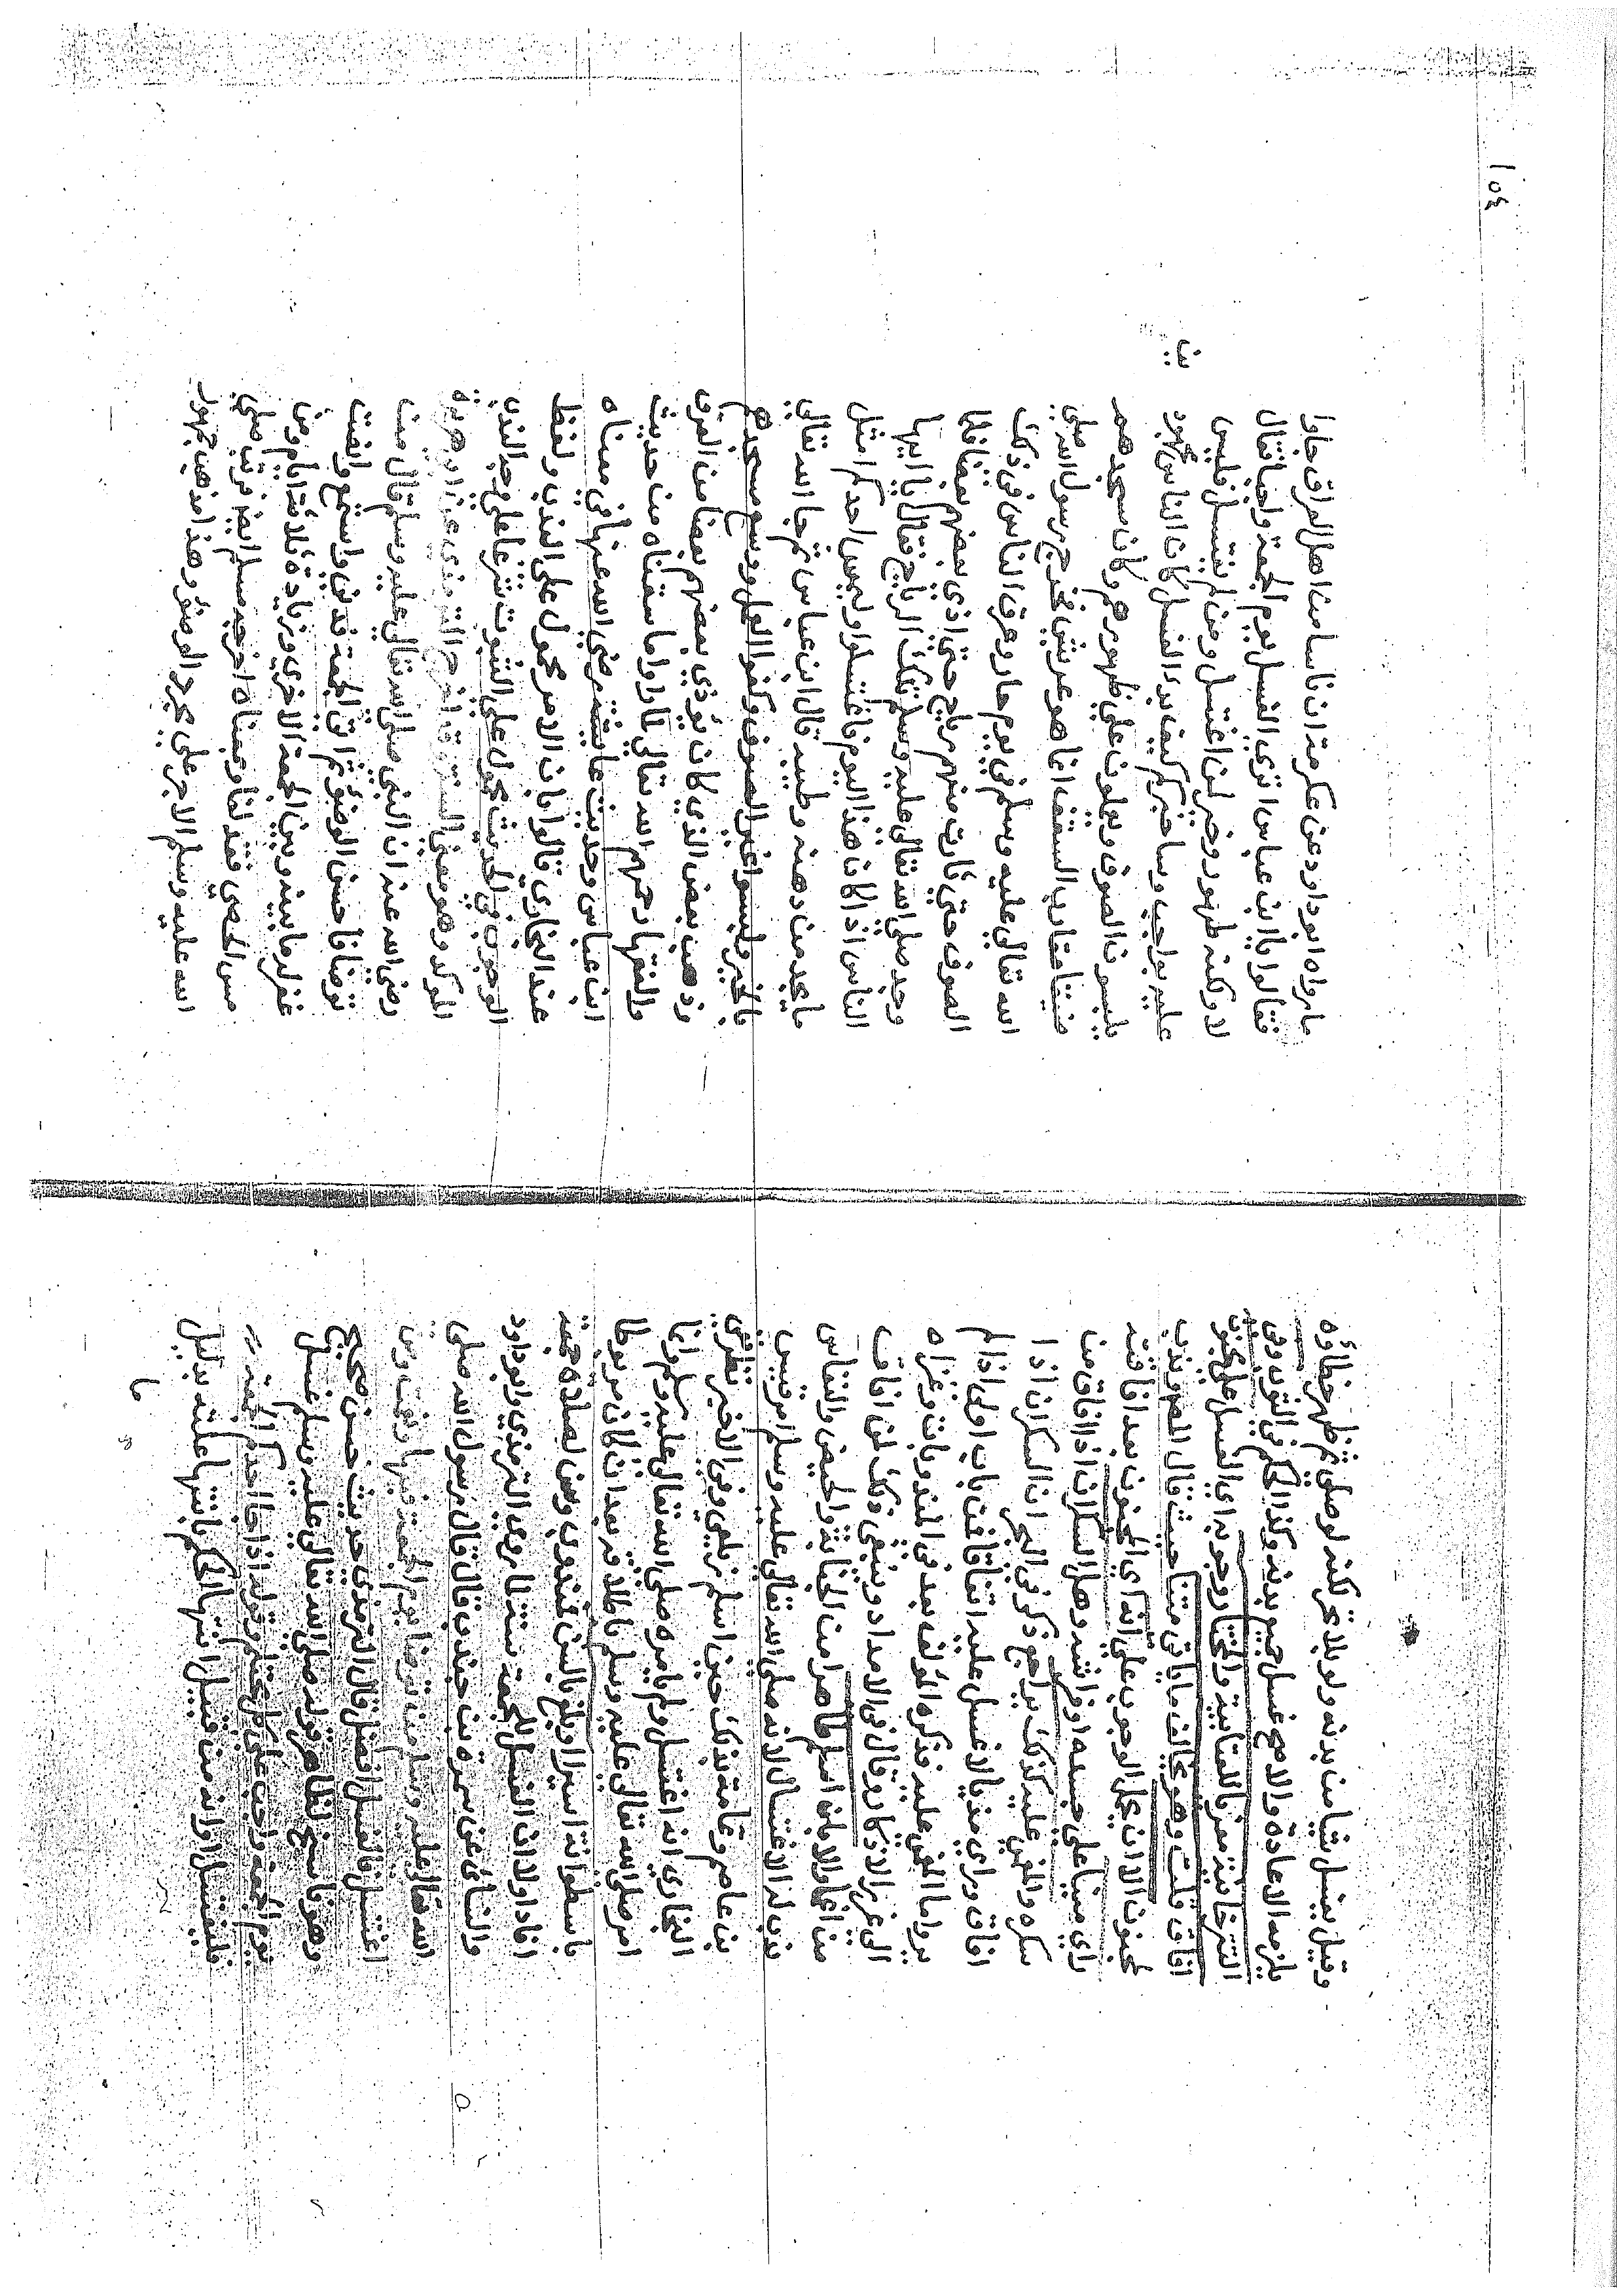 ١٥٤
وقيل يغسل شيئا من بدنه ولو بلا تحر لكنه لو صلي ثم ظهر خطاؤه
يلزمه الاعادة والاصح غسل جميع بدنه وكذا الحكم في الثوب وفي
التترخانية معزيا للعتابية والمختار وجوبه اي الغسل علي مجنون
افاق قلت وهو يخالف ما ياتي متنا حيث قال المص وندب
لمجنون الا ان يحمل الوجوب علي انه اي المجنون بعد افاقته
راي منيا علي جسده او فراشه وهل السكران اذا افاق من
سكره والمغمي عليه كذلك يراجع ذكر في البحر ان السكران اذا
افاق وراي منيا لا غسل عليه اتفاقا فمن باب اولى اذا لم
ير واما المغمي عليه فذكره المؤلف بعد في المندوبات وعزاه
الي غرر الاذكار وقال في الامداد وينبغي وكذا لمن افاق
من اغما والا بان اسلم طاهرا من الجنابة والحيض والنفاس
ندب له الاغتسال لانه صلي الله تعالي عليه وسلم امر قيس
بن عاصم وثمامة بذلك حين اسلم زيلعي وفي الاخير نظر ففي
البخاري انه اغتسل ولم يامره صلي الله تعالي عليه وسلم وانما
امر صلي الله تعالي عليه وسلم باطلاقه بعد ان كان مربوطا
باسطوانة اسيرا او بلغ بالسن فمندوب وسن لصلاة جمعة
افاد اولا ان الغسل للجمعة سنة لما روي الترمذي وابو داود
والنسائي عن سمرة بن جندب قال قال رسول الله صلي
الله تعالي عليه وسلم من توضا يوم الجمعة فبها ونعمت ومن
اغتسل فالغسل افضل قال الترمذي حديث حسن صحيح
وهو ناسخ لظاهر قوله صلي الله تعالي عليه وسلم غسل
يوم الجمعة واجب علي كل محتلم وقوله اذا جا احدكم الجمعة
فليغتسل او انه من قبيل انتها الحكم بانتها علته بدليل
ما
ما رواه ابو داود عن عكرمة ان ناسا من اهل العراق جاوا
فقالوا يا ابن عباس اتري الغسل يوم الجمعة واجبا فقال
لا ولكنه طهور وخير لمن اغتسل ومن لم يغتسل فليس
عليه بواجب وساخبركم كيف بدء الغسل كان الناس مجهودين
يلبسون الصوف ويعملون علي ظهورهم وكان مسجدهم
ضيقا مقارب السقف انما هو عريش فخرج رسول الله صلي
الله تعالي عليه وسلم في يوم حار وعرق الناس في ذلك
الصوف حتي ثارت منهم رياح حتي اذي بعضهم بعضا فلما
وجد صلي الله تعالي عليه وسلم تلك الرياح فقال يا ايها
الناس اذا كان هذا اليوم فاغتسلوا وليمس احدكم امثل
ما يجد من دهنه وطيبه قال ابن عباس ثم جا الله تعالي
بالخير ولبسوا غير الصوف وكفوا العمل ووسع مسجدهم
وذهب بعض الذي كان يؤذي بعضهم بعضا من العرق
والفقها رحمهم الله تعالي لما راوا ما سقناه من حديث
ابن عباس وحديث عايشة رضي الله عنها في معناه
عند البخاري قالوا بان الامر محمول علي الندب ولفظ
الوجوب في الحديث محمول علي الثبوت شرعا علي وجه الندب
المؤكد وهو معني السنة وقد اخرج الترمذي عن ابي هريرة
رضي الله عنه ان النبي صلي الله تعالي عليه وسلم قال من
توضا فاحسن الوضوء ثم اتي الجمعة فدني واستمع وانصت
غفر له ما بينه وبين الجمعة الاخري وزيادة ثلاثة ايام ومن
مس الحصي فقد لغا ومعناه اخرجه مسلم ايضا فرتب صلي
الله عليه وسلم الاجر علي مجرد الوضوء وهذا مذهب جمهور